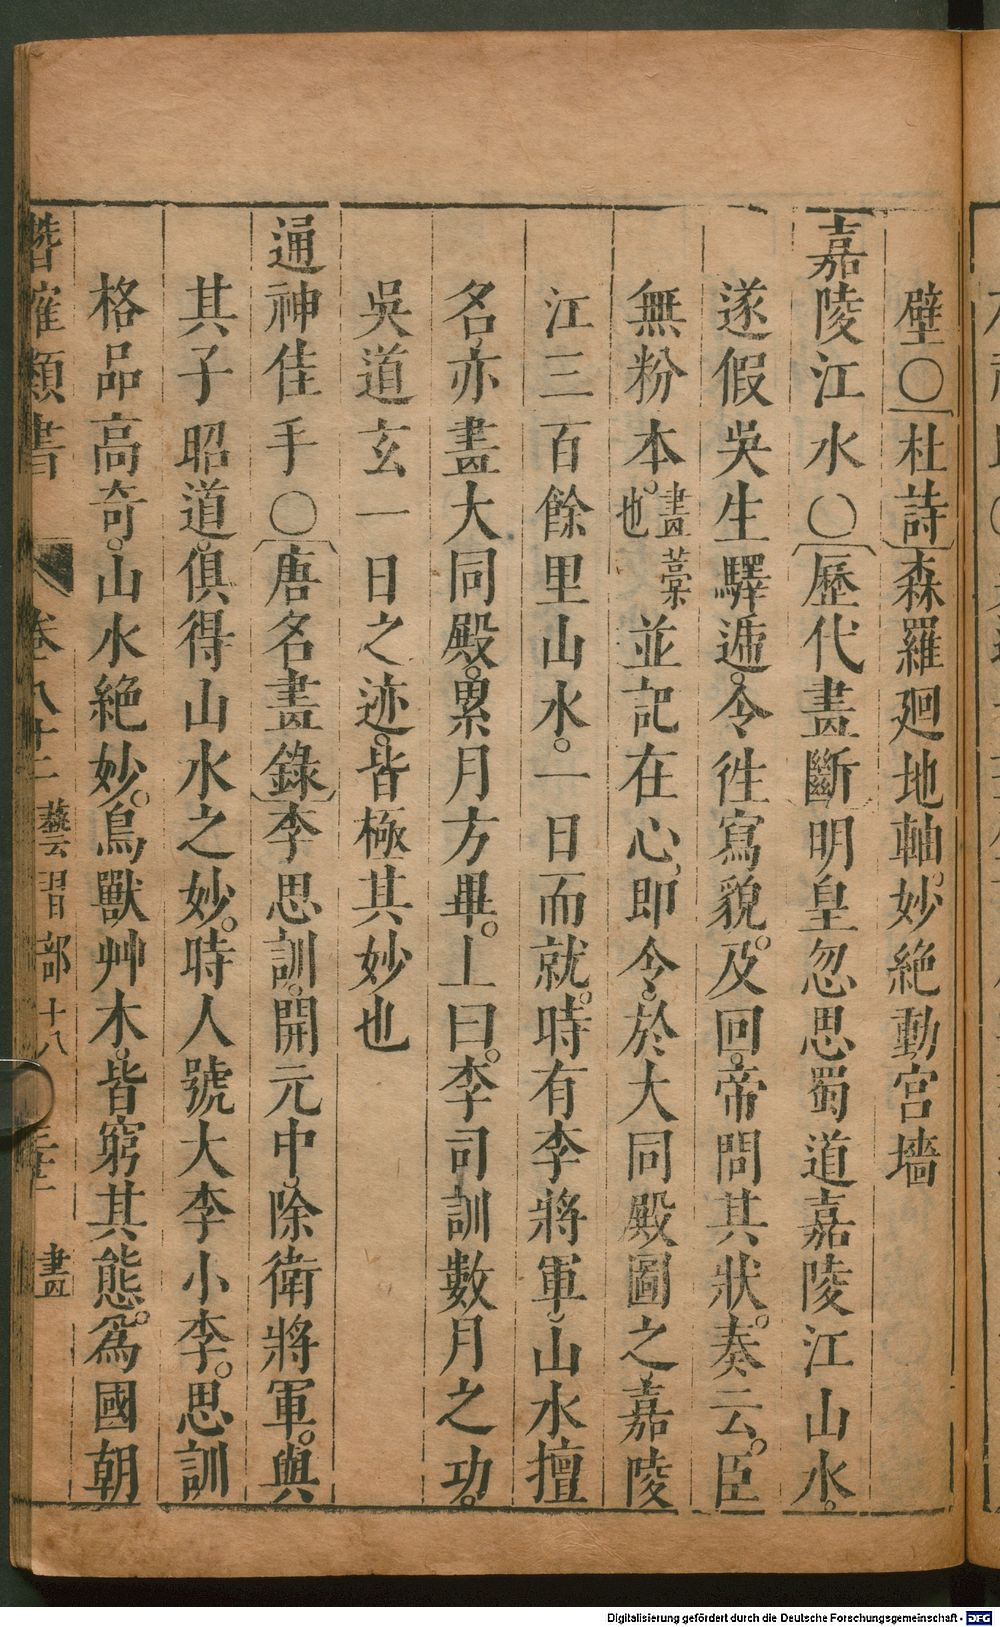 壁〇杜詩森羅廻地軸。妙絶動宮墻
嘉陵江水〇歷代畫斷明皇忽思蜀道嘉陵江山水。
遂假吳生驛遞。令徃寫貌。及回。帝問其狀。奏云。臣
無粉本。畫藁也並記在心。即令於大同殿圖之嘉陵
江三百餘里山水。一日而就。時有李將軍山水擅
名。亦畫大同殿。累月方畢。上曰。李司訓數月之功。
吳道玄一日之迹。皆極其妙也
通神佳手〇唐名畫錄李思訓。開元中。除衛將軍。與
其子昭道。俱得山水之妙。時人號大李小李。思訓
格品高奇。山水絶妙。鳥獸艸木。皆窮其態。爲國朝
類書 卷八十二 藝習部十八 畫
Digitalisierung gefördert durch die Deutsche Forschungsgemeinschaft - DFG